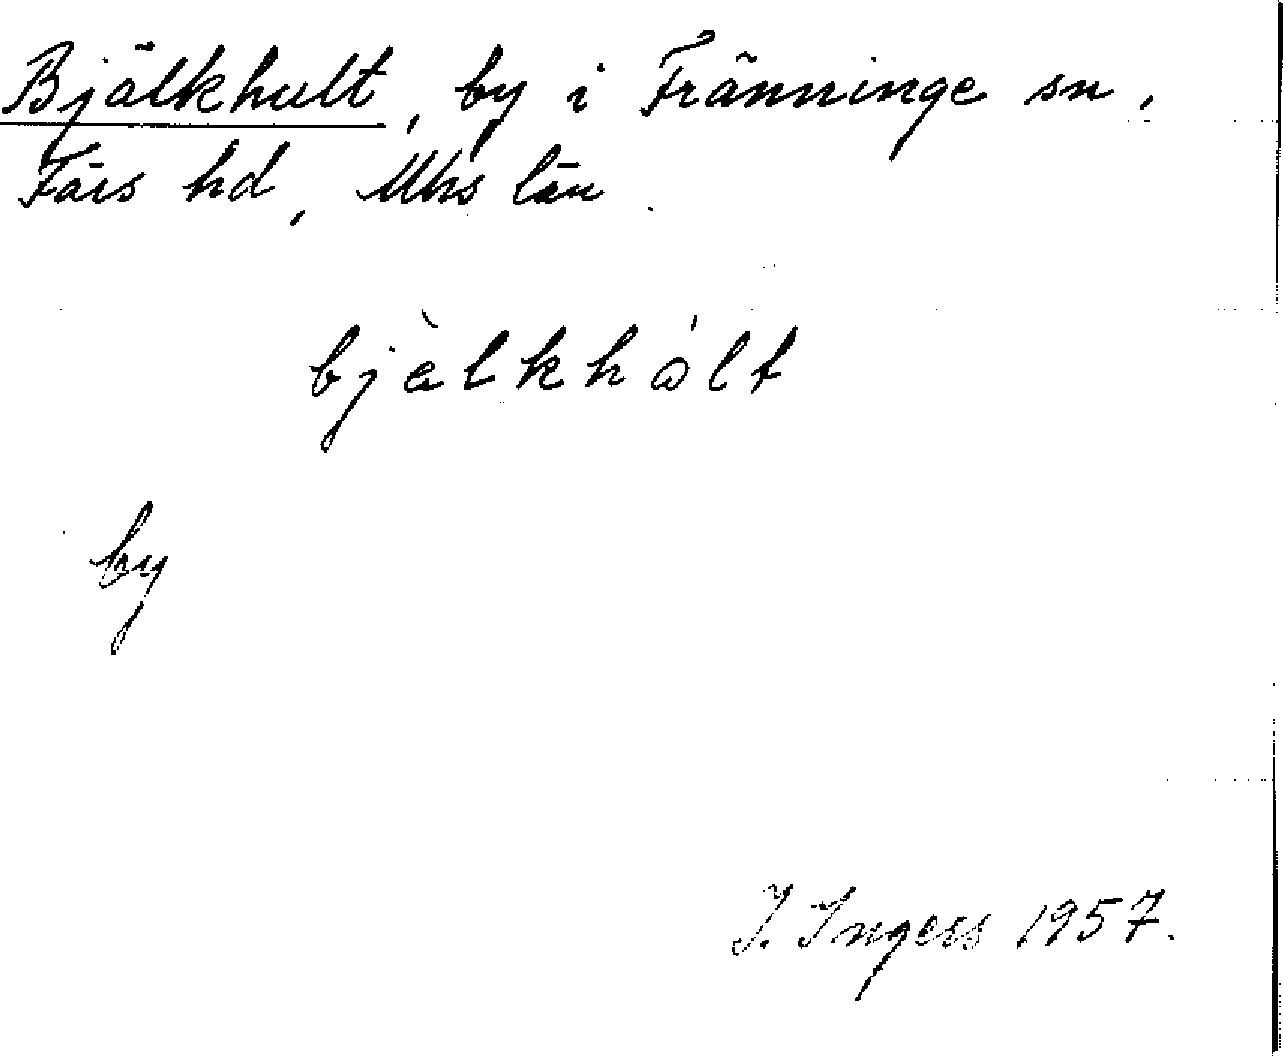 Bjälkhult, by i Fränninge sn,
Färs hd, Mhs län.
bjèlkhólt
by
I. Ingers 1957.